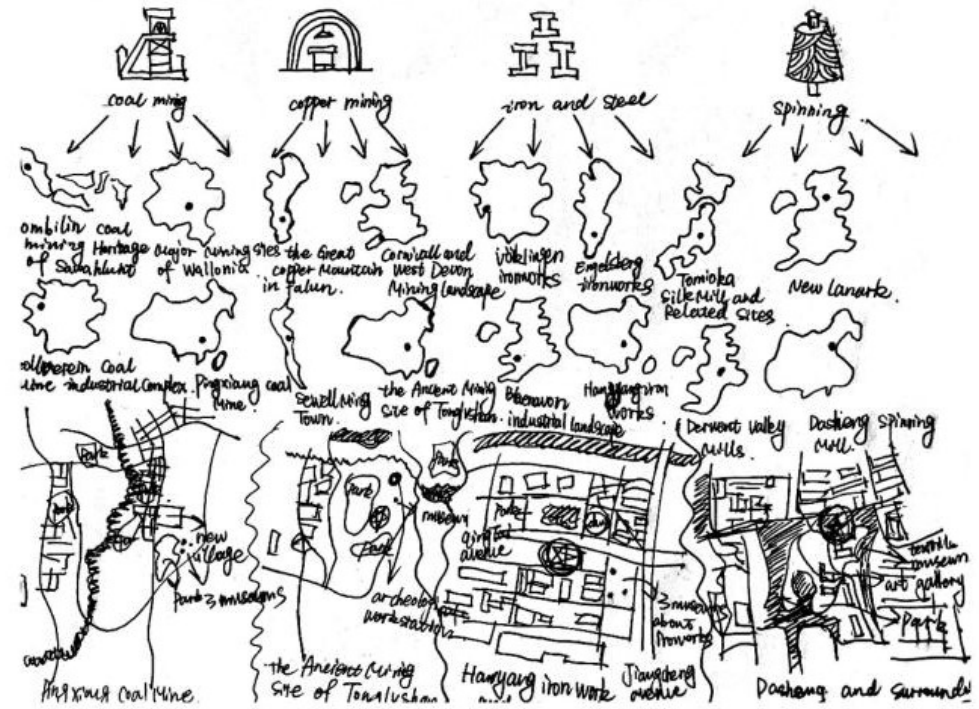 coal mining
copper mining
iron and steel
spinning
ombilin coal
mining Heritage
of Sawahlunto
major mining sites
of Wallonia
the Great
copper Mountain
in Falun.
Cornwall and
West Devon
Mining landscape
völklingen
ironworks
Engelsberg
ironworks
Tomioka
Silk Mill and
Related Sites
New Lanark.
ollverein Coal
ine industrial Complex.
Pingxiang coal
Mine.
Sewell Ming
Town.
the Ancient Mining
size of Tonglushan.
Blaenavon
industrial landscape
Hanyang iron
works
Derwent Valley
Mills.
Dasheng Spinning
Mill.
Park
Park
new
village
Park 3 museums
Pingxiang Coal Mine
Park
Park
Park
museum
archeolog
workstation
the Ancient Mining
size of Tonglushan
Park
qingtai
avenue
3 museums
about
ironworks
Hanyang iron work
Jiangcheng
avenue
textile
museum
art gallery
Park
Dasheng and surroundi